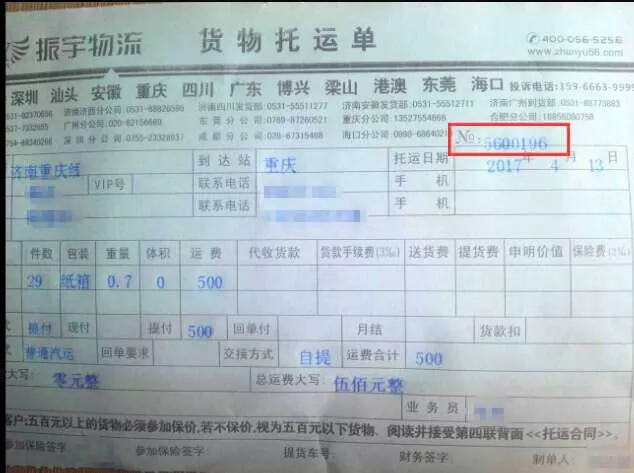 振宇物流 货物托运单 400-056-5256
www.zhenyu56.com
深圳 汕头 安徽 重庆 四川 广东 博兴 梁山 港澳 东莞 海口 投诉电话:159-6663-9999
济南济西分公司:0531-88826586 济南四川发货部:0531-55511277 济南安徽发货部:0531-55512711 济南广州到货部:0531-85773883
广州分公司:020-62156689 东莞分公司:0769-87260521 重庆分公司:13527554866 合肥分公司:18856060758
深圳分公司:0755-23328037 成都分公司:028-67315488 海口分公司:0898-6864021
№: 5600196
济南重庆线 到达站 重庆 托运日期 2017年 4月 13日
VIP号 联系电话 手机
联系电话 手机
件数 包装 重量 体积 运费 代收货款 货款手续费(3‰) 送货费 提货费 申明价值 保险费(2‰)
29 纸箱 0.7 0 500
提付 现付 提付 500 回单付 月结 货款扣
普通汽运 回单要求 交接方式 自提 运费合计 500
大写: 零元整 总运费大写: 伍佰元整
业务员
客户:五百元以上的货物必须参加保价,若不保价,视为五百元以下货物、阅读并接受第四联背面<<托运合同>>。
参加保险签字 参加保险签字 提货车号: 财务签字: 制单人: